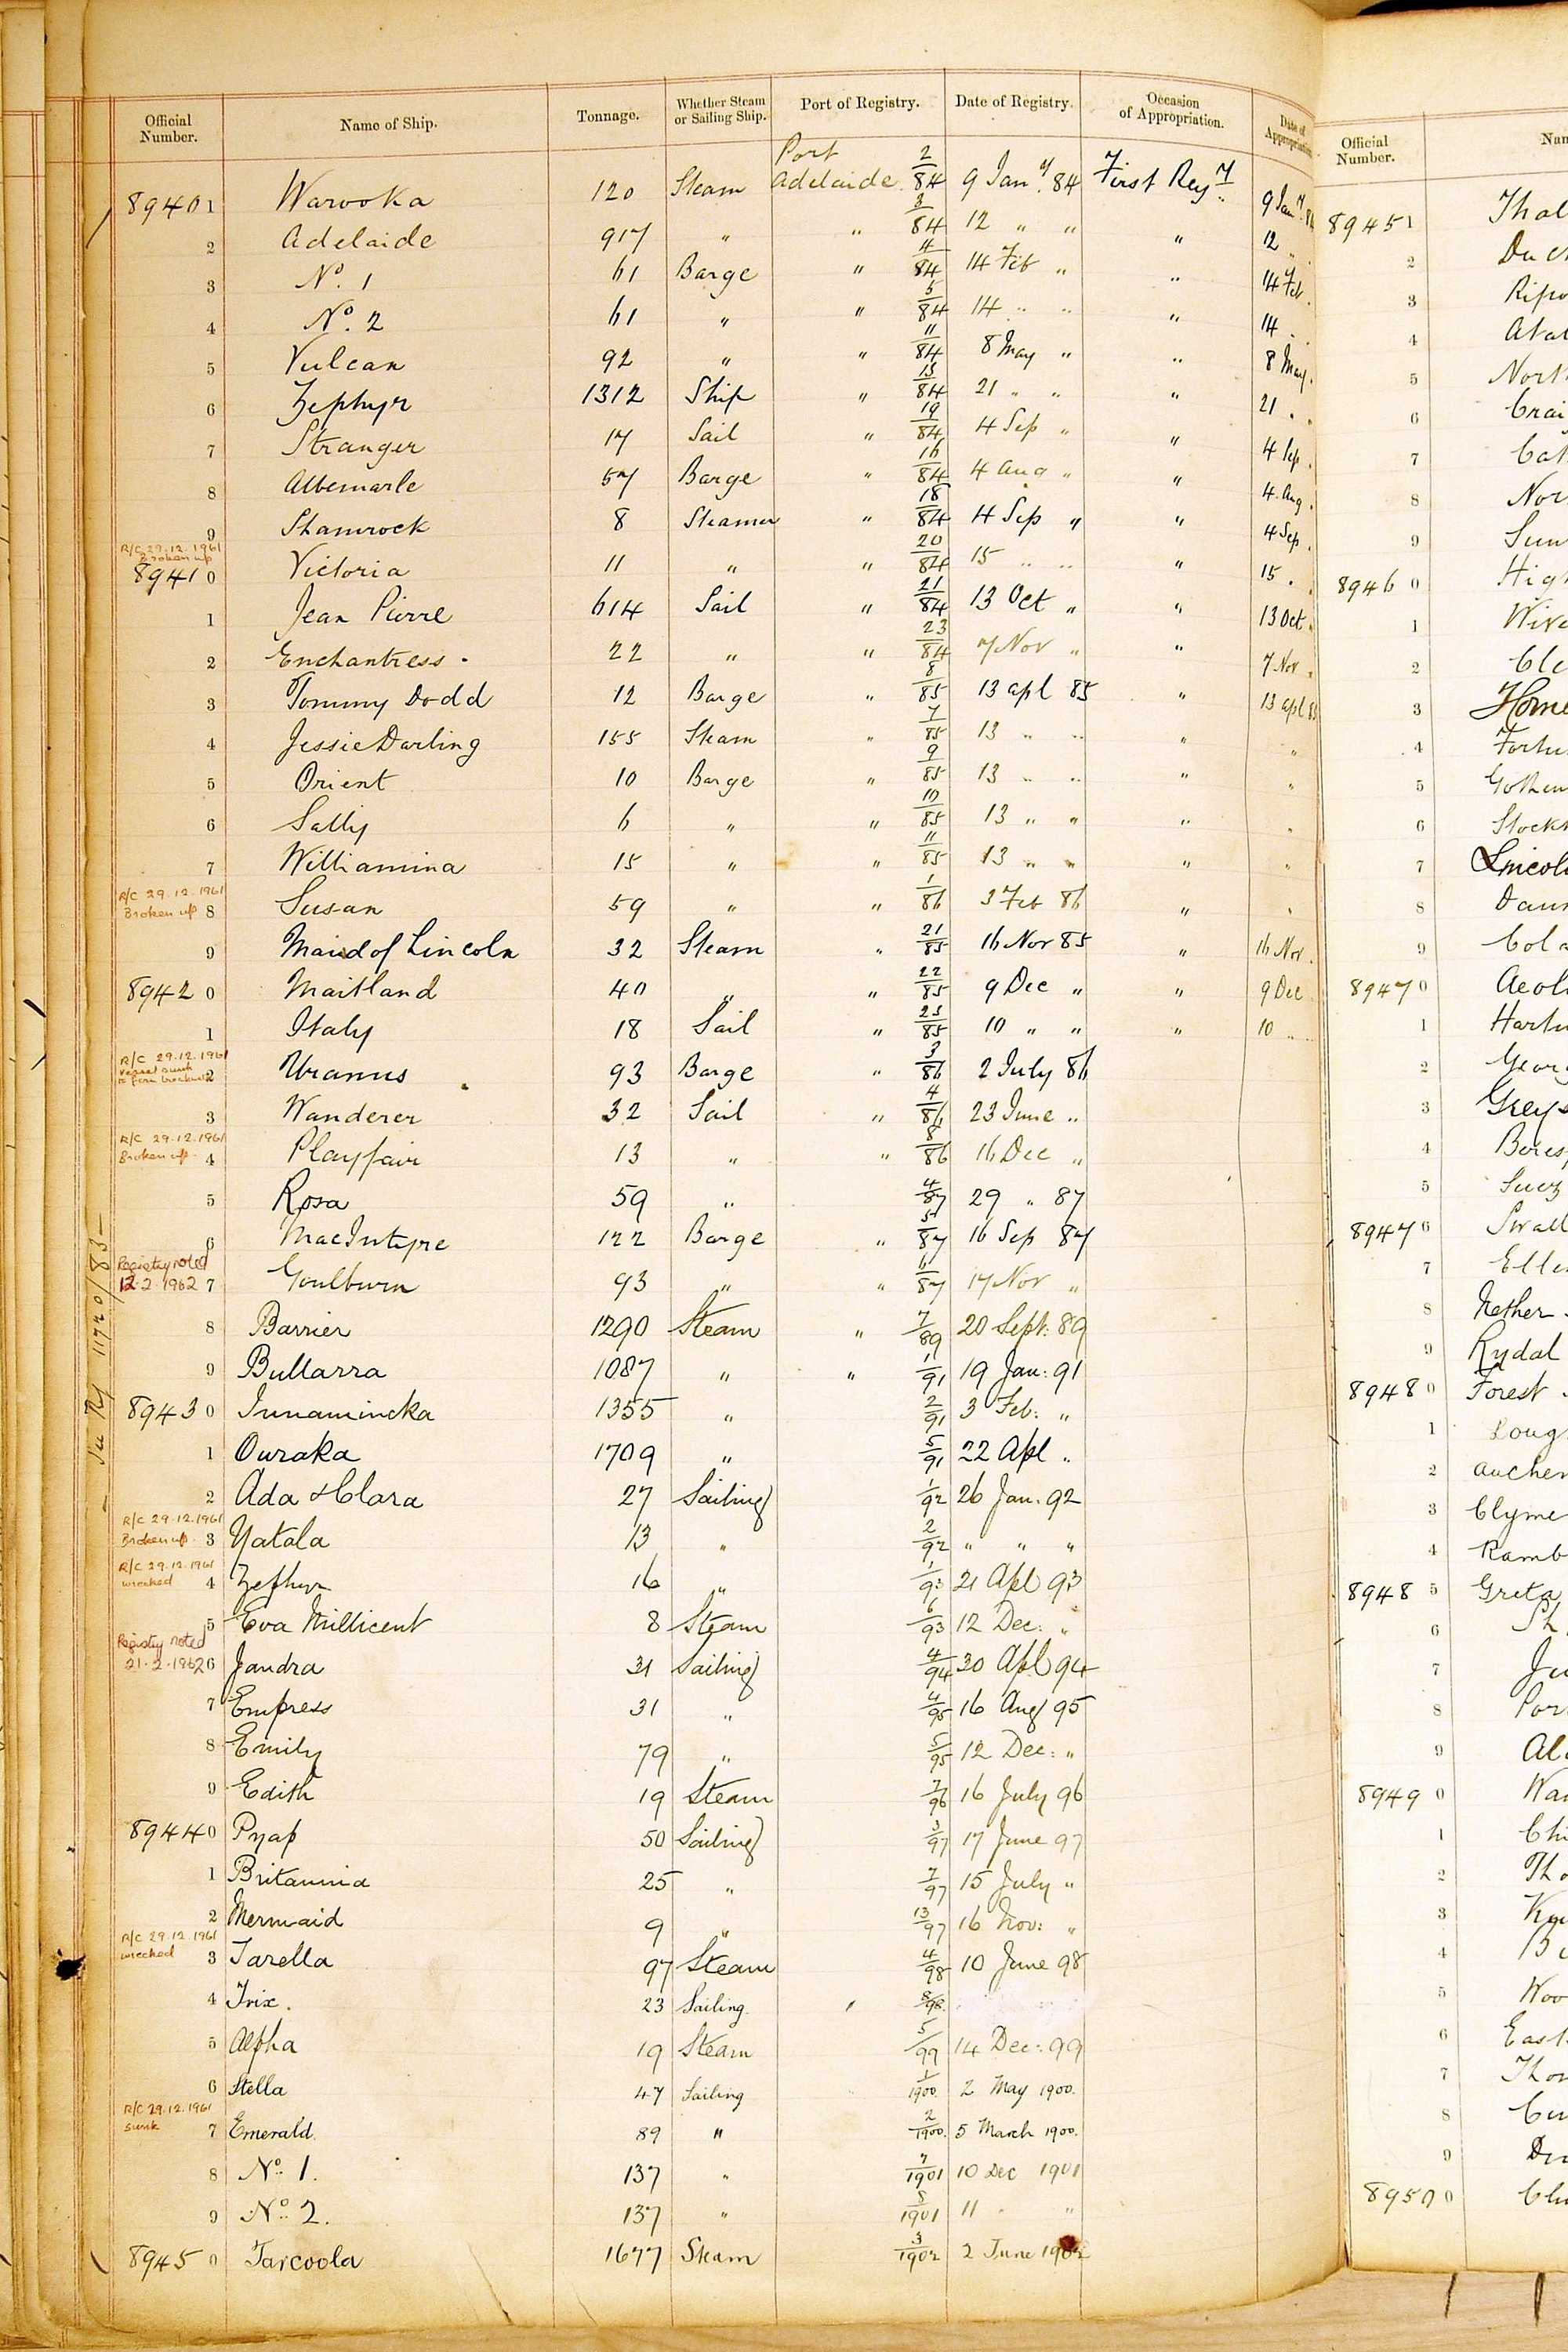 Official Number. Name of Ship. Tonnage. Whether Steam or Sailing Ship. Port of Registry. Date of Registry. Occasion of Appropriation. Date of Appropriation
89401 Warooka 120 Steam Port Adelaide 2/84 9 Jany. 84 First Regy 9 Jany.
2 Adelaide 917 " " 3/84 12 " " " 12 "
3 No. 1 61 Barge " 4/84 14 Feb " " 14 Feb.
4 No. 2 61 " " 5/84 14 " " " 14 .
5 Vulcan 92 " " 11/84 8 May " " 8 May.
6 Zephyr 1312 Ship " 15/84 21 " " " 21 . .
7 Stranger 17 Sail " 19/84 4 Sep " " 4 Sep .
8 Albemarle 57 Barge " 16/84 4 Aug " " 4. Aug .
9 Shamrock 8 Steamer " 18/84 4 Sep " " 4 Sep .
R/C 29.12.1961 Broken up
89410 Victoria 11 " " 20/84 15 " " " 15 . .
1 Jean Pierre 614 Sail " 21/84 13 Oct " " 13 Oct .
2 Enchantress . 22 " " 23/84 7 Nov " " 7 Nov .
3 Tommy Dodd 12 Barge " 8/85 13 apl 85 " 13 apl 85
4 Jessie Darling 155 Steam " 7/85 13 " " " "
5 Orient 10 Barge " 9/85 13 " " " "
6 Sally 6 " " 10/85 13 " " " "
7 Williamina 15 " " 11/85 13 " " " "
R/C 29.12.1961 Broken up
8 Susan 59 " " 1/86 3 Feb 86 " "
9 Maid of Lincoln 32 Steam " 21/85 16 Nov 85 " 16 Nov .
89420 Maitland 40 " " 22/85 9 Dec " " 9 Dec
1 Italy 18 Sail " 23/85 10 " " " 10 "
R/C 29.12.1961 vessel sunk to form breakwater
2 Uranus 93 Barge " 3/86 2 July 86
3 Wanderer 32 Sail " 4/86 23 June "
R/C 29.12.1961 Broken up.
4 Playfair 13 " " 8/86 16 Dec "
5 Rosa 59 " 4/87 29 " 87
6 MacIntyre 122 Barge " 5/87 16 Sep 87
Registry noted 12.2.1962
7 Goulburn 93 " " 6/87 17 Nov "
8 Barrier 1290 Steam " 7/89 20 Sept: 89
9 Bullarra 1087 " " 1/91 19 Jan: 91
89430 Innamincka 1355 " 2/91 3 Feb: "
1 Ouraka 1709 " 5/91 22 Apl "
2 Ada & Clara 27 Sailing 1/92 26 Jan. 92
R/C 29.12.1961 Broken up.
3 Yatala 13 " 2/92 " " "
R/C 29.12.1961 wrecked
4 Zephyr 16 " 1/93 21 Apl 93
5 Eva Millicent 8 Steam 6/93 12 Dec: "
Registry noted 21.2.1962
6 Jandra 31 Sailing 4/94 30 Apl 94
7 Empress 31 " 4/95 16 Aug 95
8 Emily 79 " 5/95 12 Dec: "
9 Edith 19 Steam 7/96 16 July 96
89440 Pyap 50 Sailing 3/97 17 June 97
1 Britannia 25 " 7/97 15 July "
2 Mermaid 9 " 13/97 16 Nov: "
R/C 29.12.1961 wrecked
3 Tarella 97 Steam 4/98 10 June 98
4 Trix. 23 Sailing. " 8/98.
5 Alpha 19 Steam 5/99 14 Dec: 99
6 Stella 47 Sailing 1/1900. 2 May 1900.
R/C 29.12.1961 sunk
7 Emerald. 89 " 2/1900. 5 March 1900.
8 No. 1. 137 " 7/1901 10 Dec 1901
9 No. 2. 137 " 8/1901 11 " "
89450 Tarcoola 1677 Steam 3/1902 2 June 1902
11720/83
Official Number.
89451
2
3
4
5
6
7
8
9
89460
1
2
3
4
5
6
7
8
9
89470
1
2
3
4
5
89476
7
8 Nether
9 Rydal
89480 Forest
1
2
3
4
89485 Greta
6
7
8
9
89490
1
2
3
4
5
6
7
8
9
89500